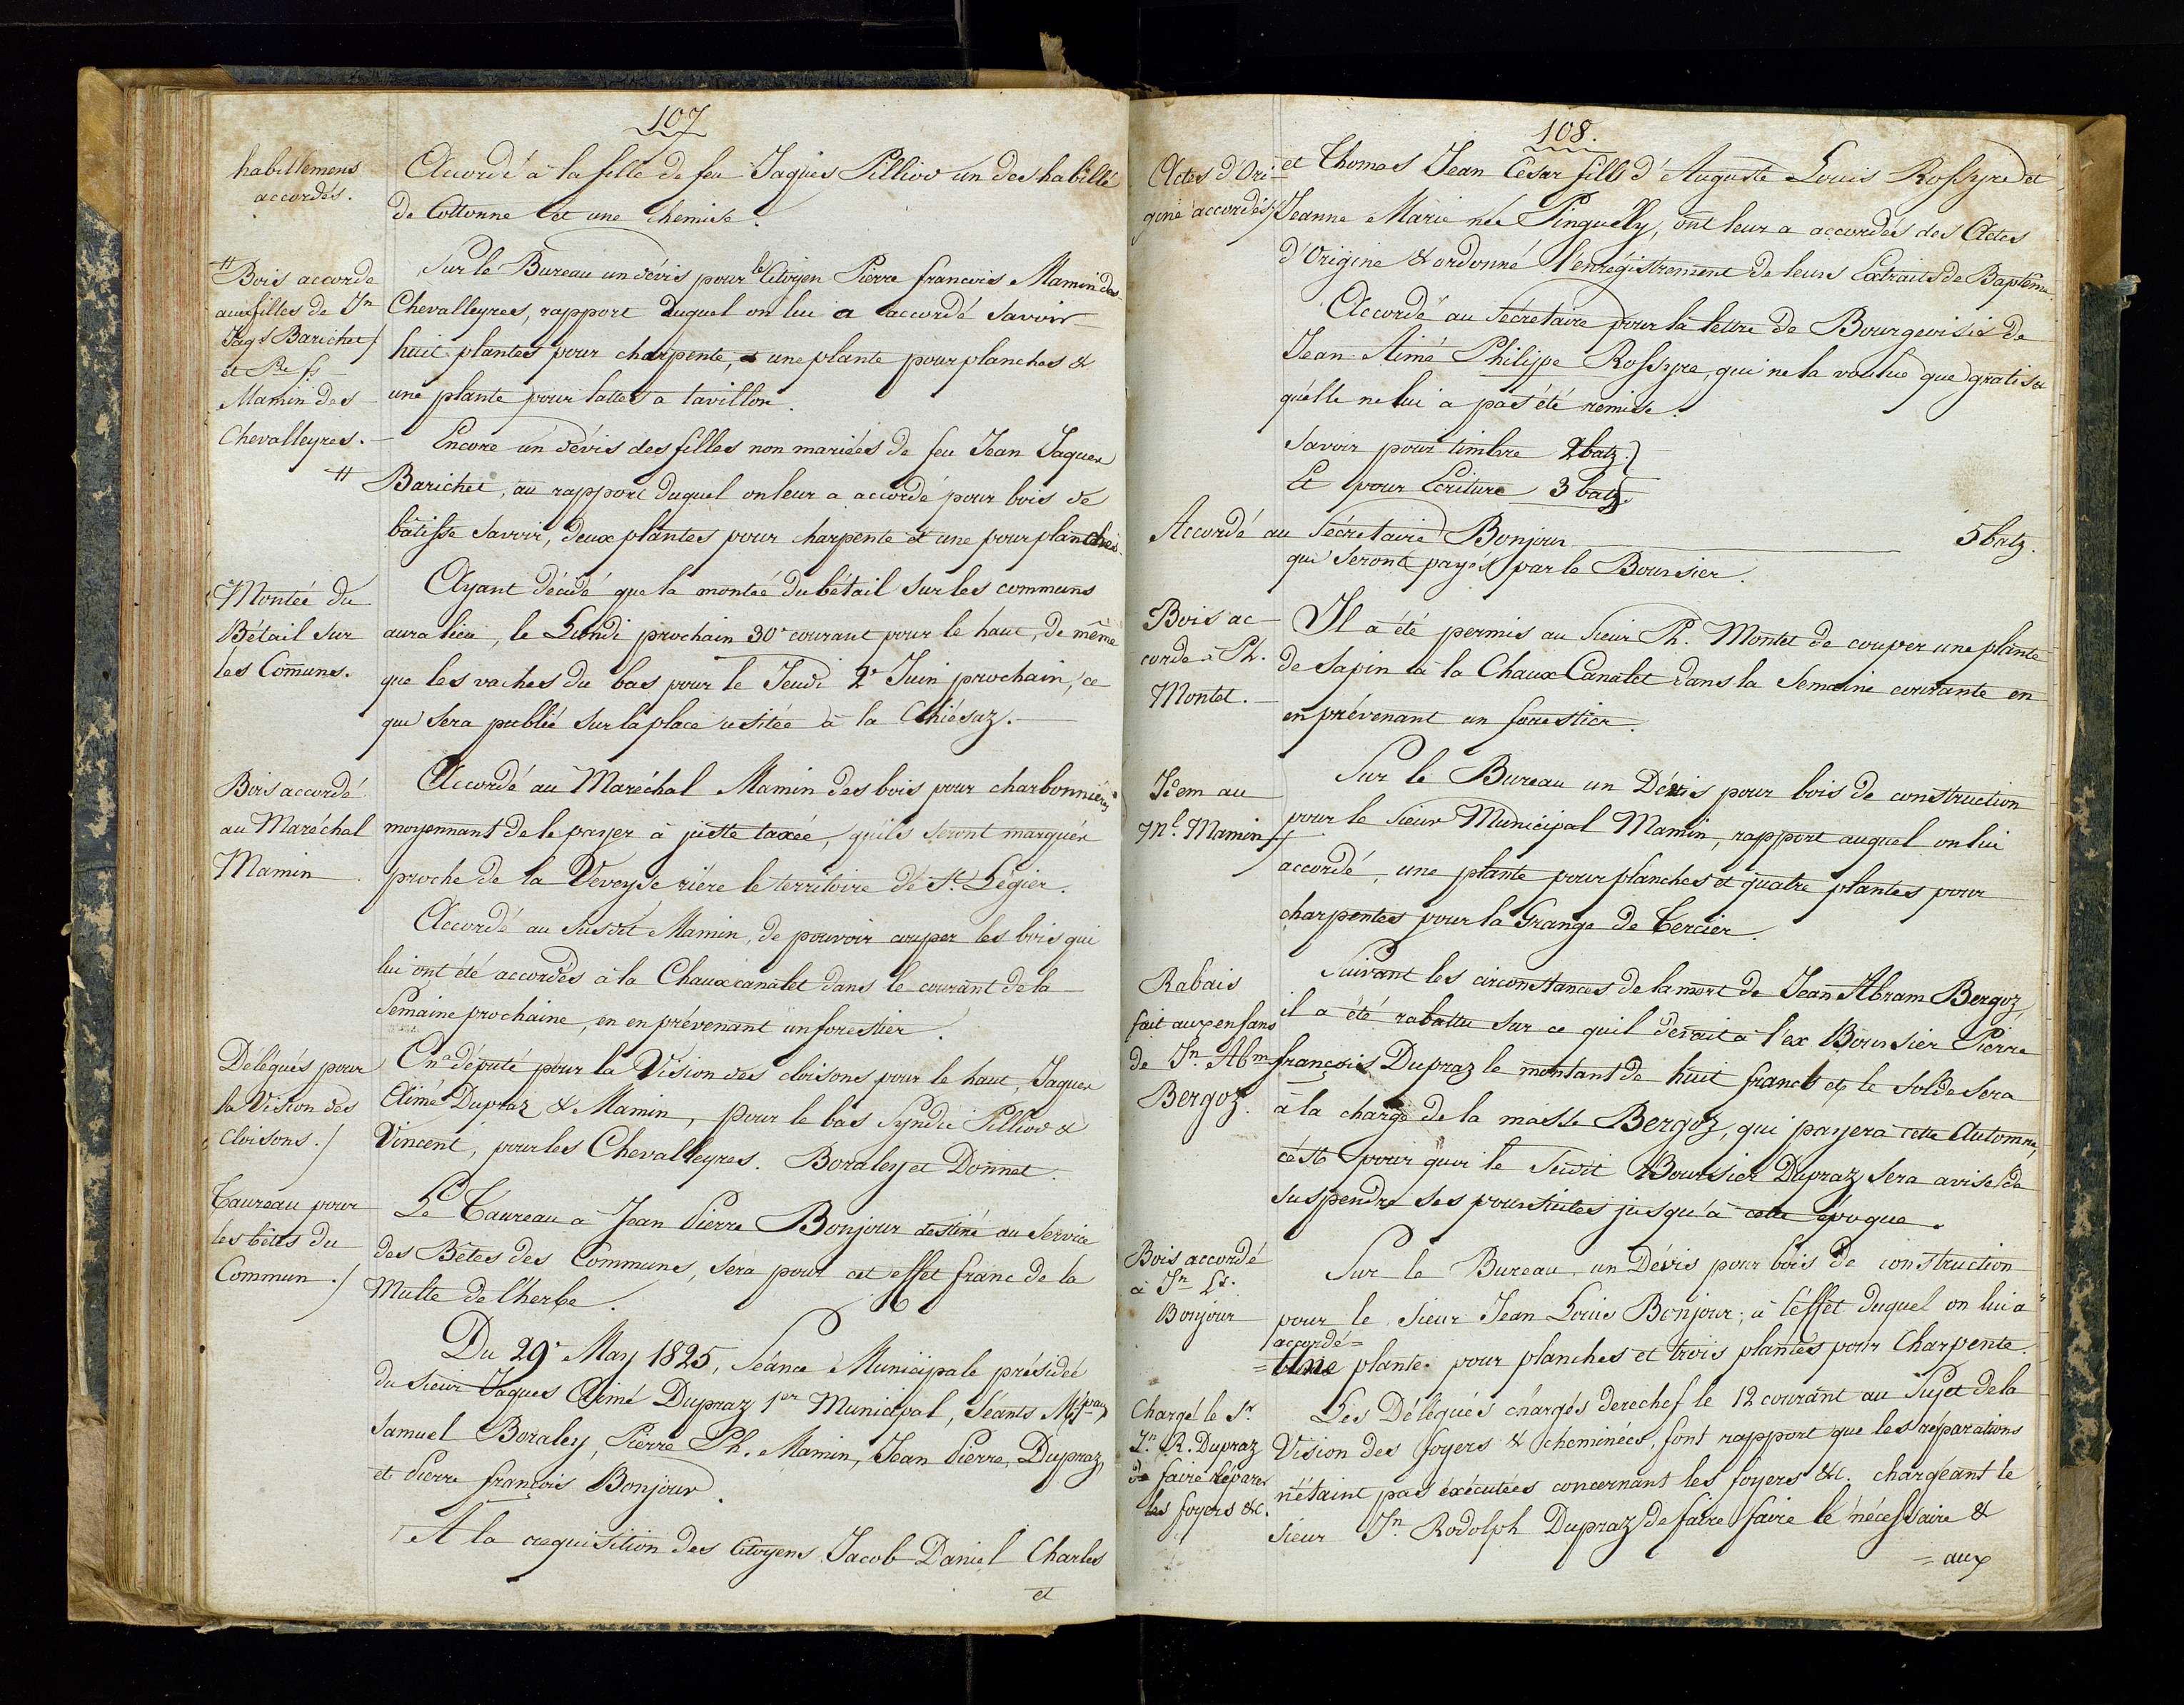 107
habillemens
accordés.
Accordé à la fille de feu Jaques Pilliod un deshabillé
de Cottonne et une chemise.
# Bois accordé
aux filles de Jn
Jaqs Barichet /
et Pre fs
Mamin des
Chevalleyres.
Sur le Bureau un dévis pour le Citoyen Pierre francois Mamin des
Chevalleyres, rapport duquel on lui a accordé savoir
huit plantes pour charpente, une plante pour planches &
une plante pour lattes a tavillon.
Encore un dévis des filles non mariées de feu Jean Jaques
# Barichet, au rapport duquel on leur a accordé pour bois de
bâtisse savoir, deux plantes pour charpente et une pour planches.
Montée du
Bétail sur
les Comuns.
Ayant décidé que la montée du bétail sur les communs
aura lieu, le Lundi prochain 30e courant pour le haut, de même
que les vaches du bas pour le Jeudi 2e Juin prochain, ce
qui sera publié sur la place usitée à la Chiésaz.
Bois accordé
au Maréchal
Mamin
Accordé au Maréchal Mamin des bois pour charbonnières
moyennant de le payer à juste taxée, qu'ils seront marqués
proche de la Veveyse rière le territoire de St Légier.
Accordé au susdit Mamin, de pouvoir couper les bois qui
lui ont été accordés à la Chaux canalet dans le courant de la
Semaine prochaine, en en prévenant un forestier.
Délégués pour
la Vision des
cloisons. /
On a député pour la Vision des cloisons pour le haut, Jaques
Aimé Dupraz & Mamin, pour le bas Syndic Pilliod &
Vincent, pour les Chevalleyres. Boraley et Donnet.
Taureau pour
les bêtes du
Commun. /
Le Taureau à Jean Pierre Bonjour destiné au service
des Bêtes des Communs, sera pour cet effet franc de la
Multe de l'herbe.
Du 29e May 1825, Séance Municipale présidée
du sieur Jaques Aimé Dupraz 1er Municipal, Séants Mrs
Samuel Boraley, Pierre Ph. Mamin, Jean Pierre Dupraz,
et Pierre françois Bonjour.
A la requisition des Citoyens Jacob Daniel Charles
et
108.
Actes d'Ori-
gine accordés /
et Thomas Jean César fills d'Auguste Louis Rossyre et
Jeanne Marie née Pinguelly, ont leur a accordés des Actes
d'Origine & ordonné l'enrégistrement de leurs Extraits de Baptême.
Accordé au Sécretaire pour la lettre de Bourgeoisie de
Jean Aimé Philippe Rossyre, qui ne la voulue que gratis &
qu'elle ne lui a pas été remise.
savoir pour timbre 2 batz.
Et pour Ecriture 3 batz.
Accordé au Sécretaire Bonjour 5 batz.
qui seront payés par le Boursier.
Bois ac-
cordé à Ph.
Montet.
Il a été permis au sieur Ph. Montet de couper une plante
de Sapin à la Chaux Canalet dans la Semaine courante en
en prévenant un forestier.
Idem au
Ml. Mamin /
Sur le Bureau un Dévis pour bois de construction
pour le sieur Municipal Mamin, rapport auquel on lui
accordé, une plante pour planches et quatre plantes pour
charpentes pour la Grange de Tercier.
Rabais
fait aux enfans
de Jn. Abm
Bergoz.
Suivant les circonstances de la mort de Jean Abram Bergoz,
il a été rabattu sur ce quil devait à l'ex Boursier Pierre
françois Dupraz le montant de huit francs et le solde sera
à la charge de la masse Bergoz, qui payera cette Automne,
c'est pour quoi le susdit Boursier Dupraz sera avisé de
suspendre ses poursuites jusqu'à cette époque.
Bois accordé
à Jn Ls.
Bonjour
Sur le Bureau, un Dévis pour bois de construction
pour le sieur Jean Louis Bonjour, à l'effet duquel on lui a
accordé =
= Une plante pour planches et trois plantes pour Charpente.
Chargé le Sr.
Jn. R. Dupraz
de faire réparer
les foyers &c.
Les Délégués chargés derechef le 12 courant au Sujet de la
Vision des foyers & cheminées, font rapport que les réparations
n'étaint pas éxécutées concernant les foyers &c. chargeant le
sieur Jn. Rodolph Dupraz de faire faire le nécessaire &
= aux